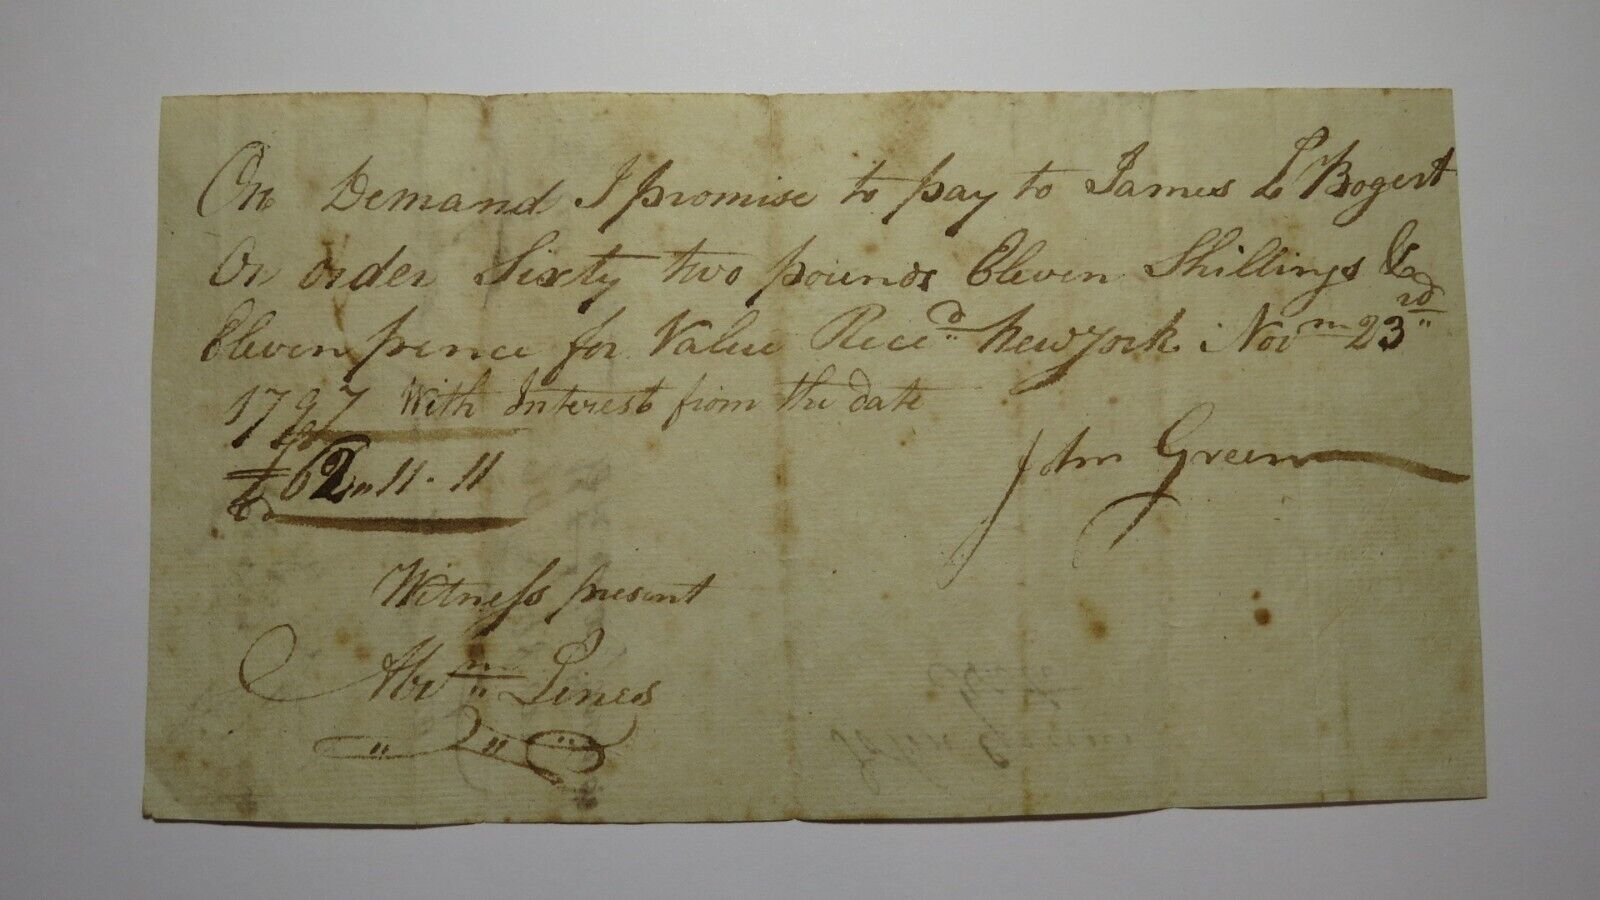 On Demand I promise to pay to James L Bogert
Or order Sixty two pounds Eleven Shillings &
Eleven pence for Value Rece^d New York Nov^m 23^rd
1797 With Interest from the date
John Green
£62 " 11 - 11
Witness present
Abr^m Lines